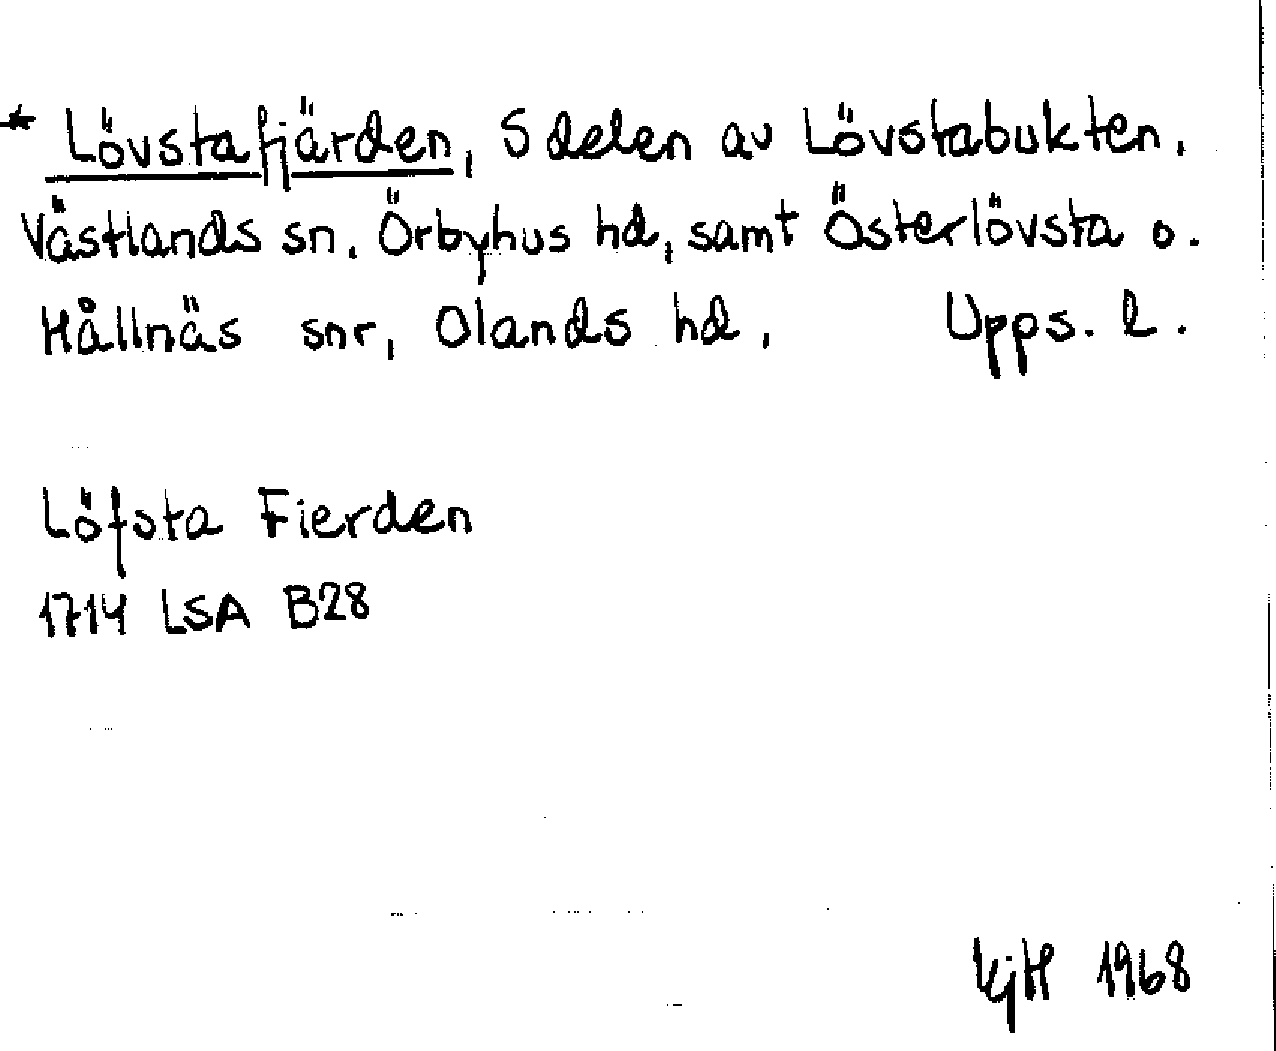 * Lövstafjärden, S delen av Lövstabukten,
Västlands sn, Örbyhus hd, samt Österlövsta o.
Hållnäs snr, Olands hd, Upps. l.
Löfsta Fierden
1714 LSA B28
KjH 1968